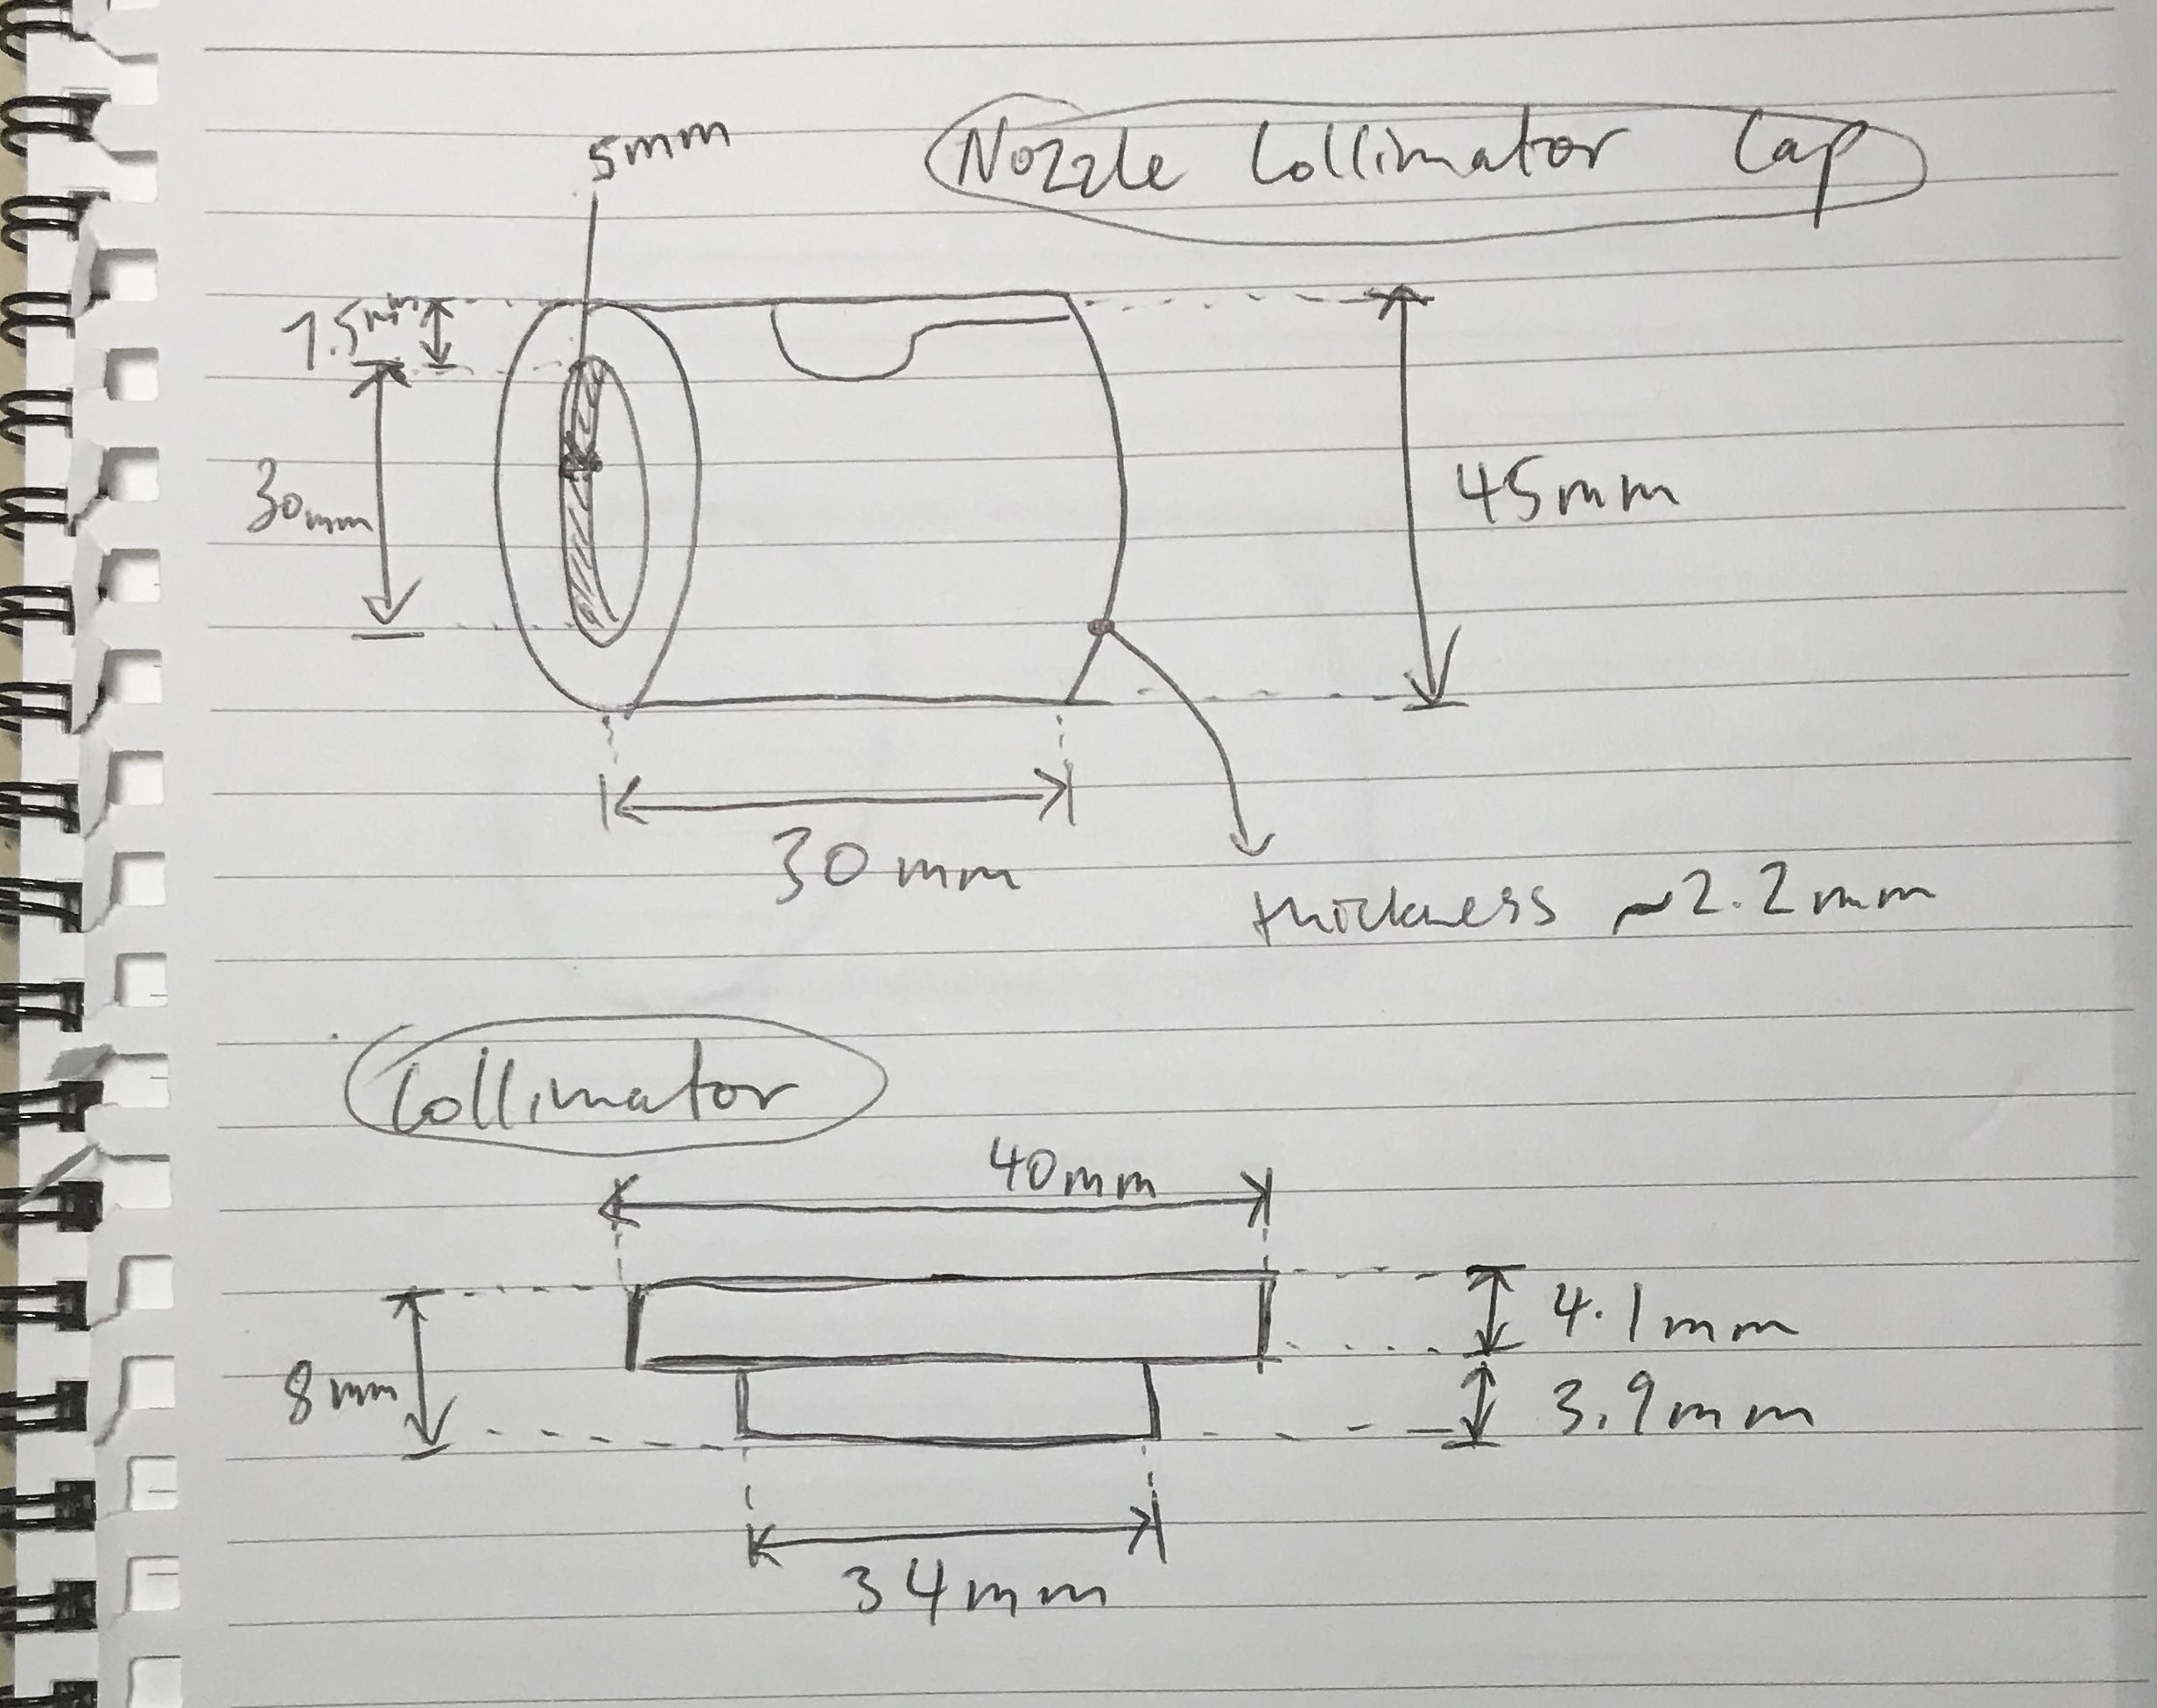 5mm
Nozzle Collimator Cap
7.5mm
30mm
45mm
30mm
thickness ~2.2mm
Collimator
40mm
4.1mm
8mm
3.9mm
34mm